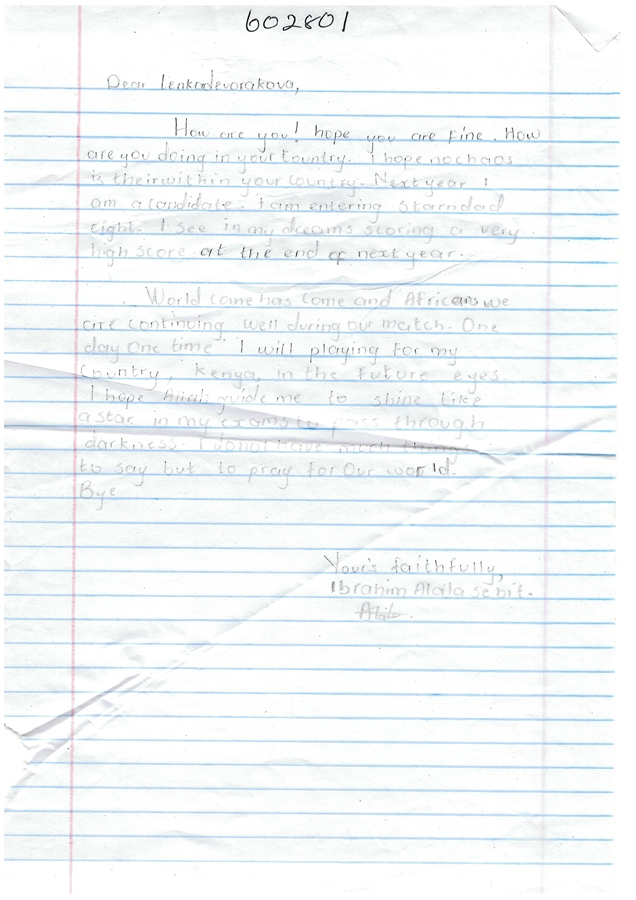 602801
Dear Lenkadevorakova,
How are you! hope you are Fine. How
are you doing in your Country. I hope nochaos
is theirwithin your Country. Next year I
am a candidate. I am entering Starndad
eight. I see in my dreams scoring a very
high score at the end of next year.
World come has come and Africans we
are continuing well during our match. One
day One time I will playing for my
Country, Kenya, in the future eyes.
I hope guide me to shine like
a star in my exams to pass through
darkness. I donot have much things
to say but to pray for Our world.
Bye
Your's faithfully,
Ibrahim Alaila Sebit.